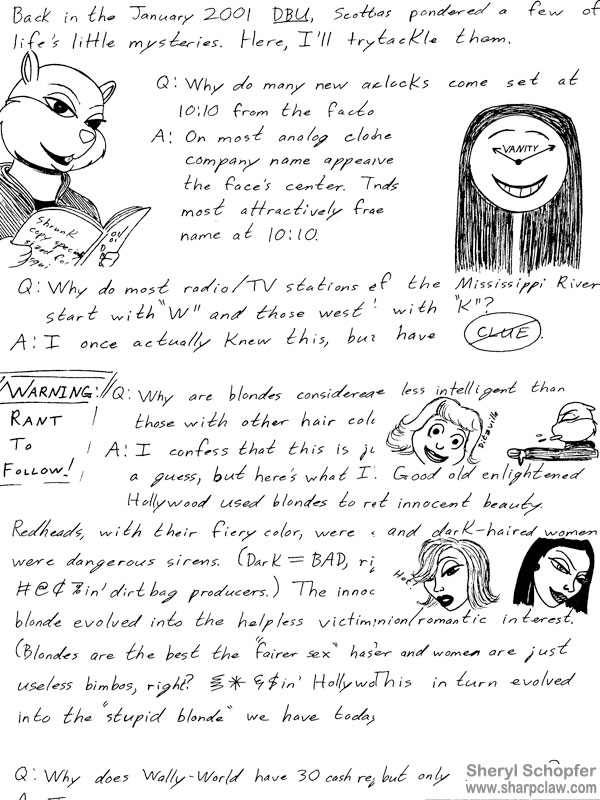 Back in the January 2001 DBU, Scottias pondered a few of
life's little mysteries. Here, I'll trytackle them.
Q: Why do many new aclocks come set at
10:10 from the facto
A: On most analog clohe
company name appeaive
the face's center. Tnds
most attractively frae
name at 10:10.
VANITY
Shrunk
copy
sized for
Q: Why do most radio/TV stations of the Mississippi River
start with "W" and those west with "K"?
A: I once actually knew this, but have CLUE.
WARNING:
RANT
TO
FOLLOW!
Q: Why are blondes considereae less intelligent than
those with other hair colo
A: I confess that this is ju
a guess, but here's what I. Good old enlightened
Hollywood used blondes to ret innocent beauty.
Redheads, with their fiery color, were and dark-haired women
were dangerous sirens. (Dark = BAD, ri
#@¢%in' dirtbag producers.) The innoc
Hot!
blonde evolved into the helpless victiminion/romantic interest.
(Blondes are the best the "fairer sex" haser and women are just
useless bimbos, right? in' HollywoThis in turn evolved
into the "stupid blonde" we have today
Q: Why does Wally-World have 30 cash reg but only
Sheryl Schopfer
www.sharpclaw.com